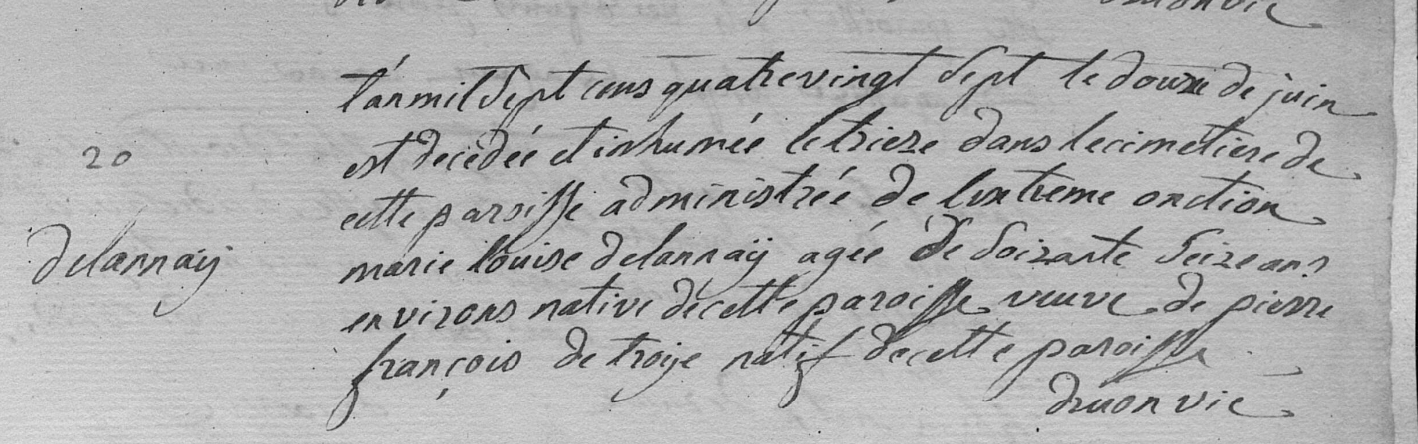 l'an mil sept cens quatrevingt sept le douze de juin
est decedée et inhumée le trieze dans le cimetiere de
20
cette paroisse administrée de l'extreme onction
delannaÿ
marie louise delannaÿ agée de soizante seize ans
environs native de cette paroisse veuve de pierre
françois de troije natif de cette paroisse
druon vic